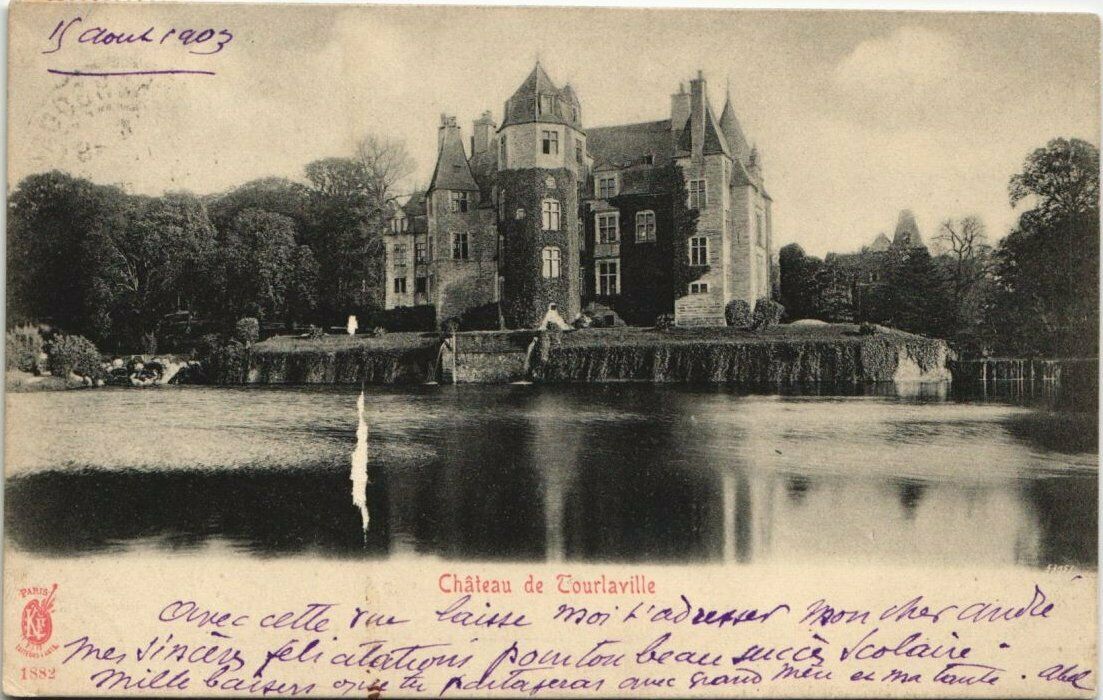 15 Aout 1903
Château de Tourlaville
PARIS
KF
EDITEURS
1882
Avec cette vue laisse moi t'adresser mon cher andré
mes sincères félicitations pour ton beau succès scolaire.
Mille baisers que tu partageras avec grand mère et ma tante. Abel